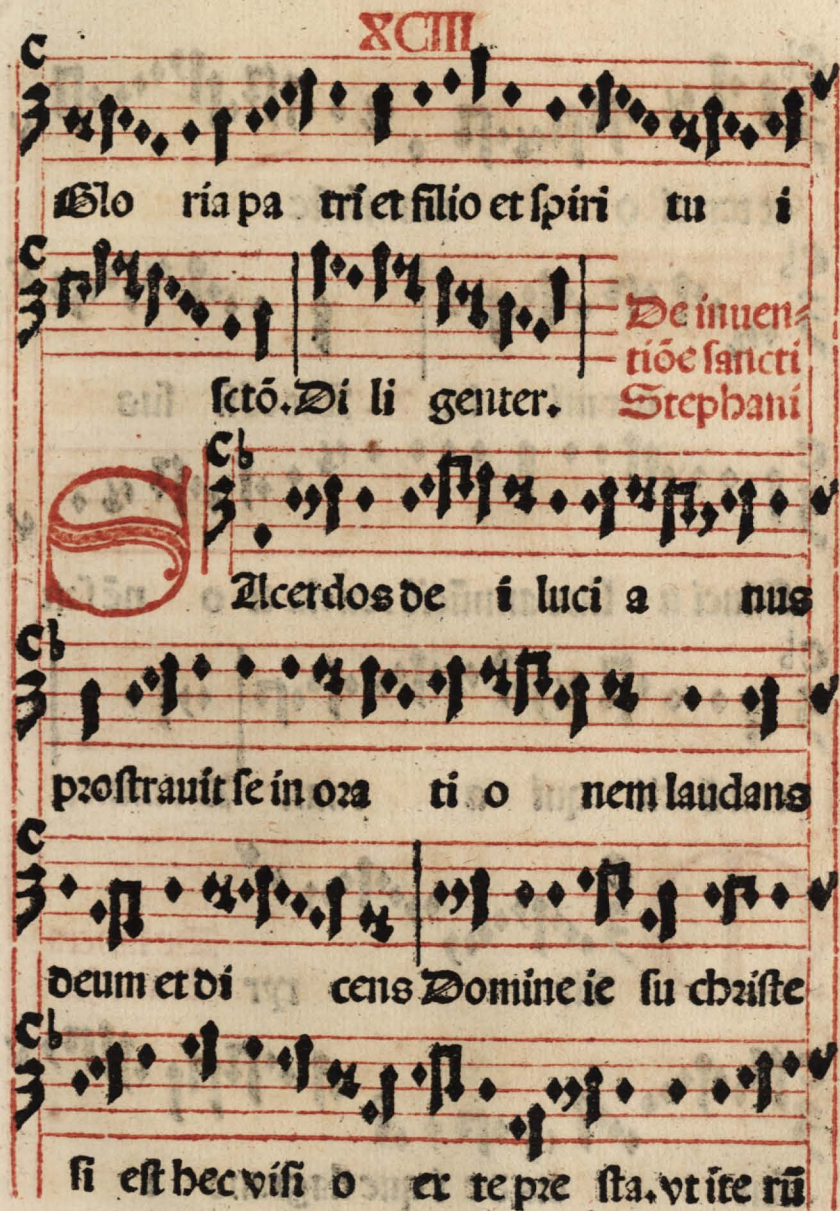 XCIII
Glo ria pa tri et filio et spiri tu i
sctō. Di li genter.
De inuen⸗
tiōe sancti
Stephani
SAcerdos de i luci a nus
prostrauit se in ora ti o nem laudans
deum et di cens Domine ie su christe
si est hec visi o ex te pre sta. vt ite rū